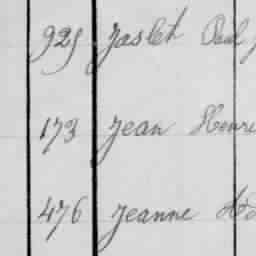 925 Jasleh Paul
173 Jean Henri
476 Jeanne